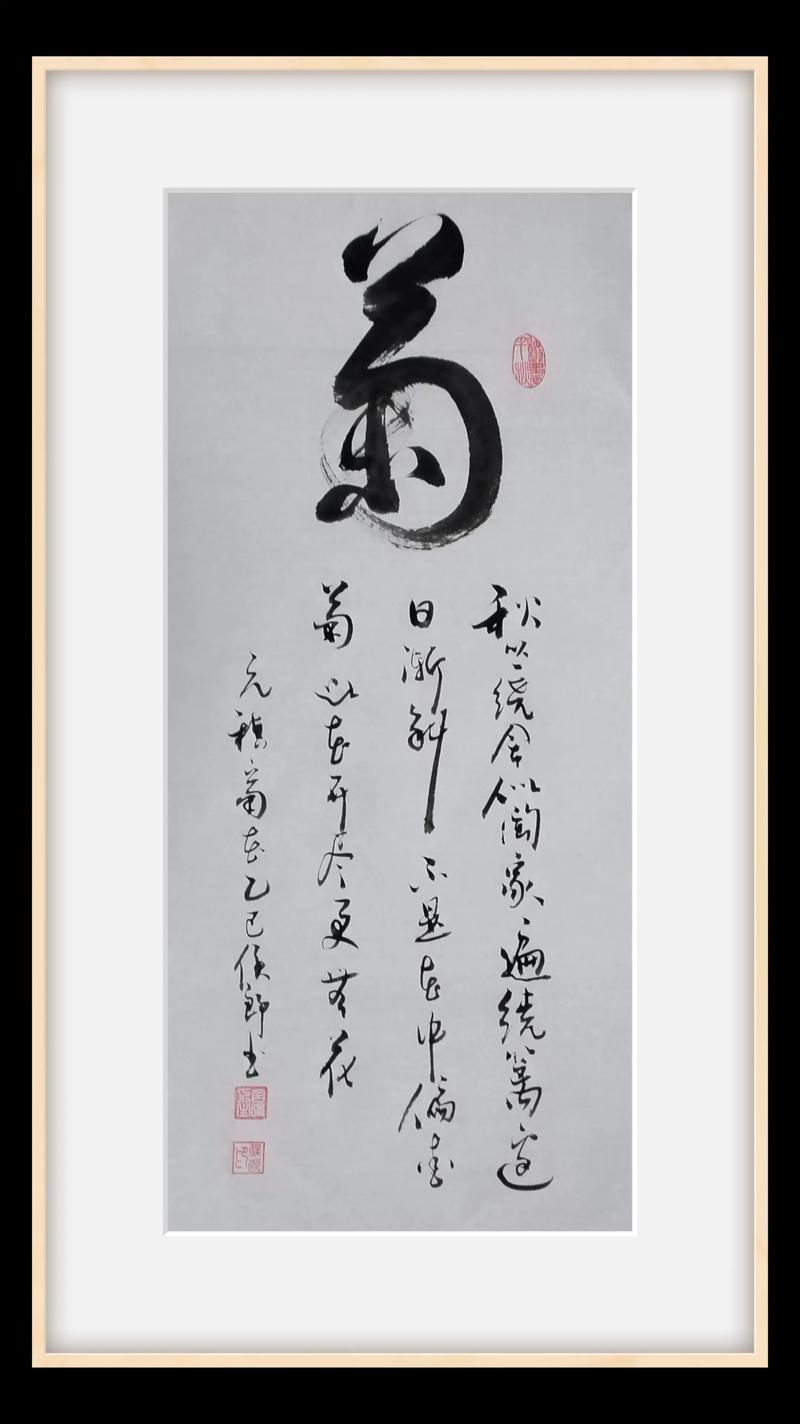 菊
翰墨千秋
秋丛绕舍似陶家遍绕篱边
日渐斜不是花中偏爱
菊此花开尽更無花
元稹菊花乙巳侯郎书